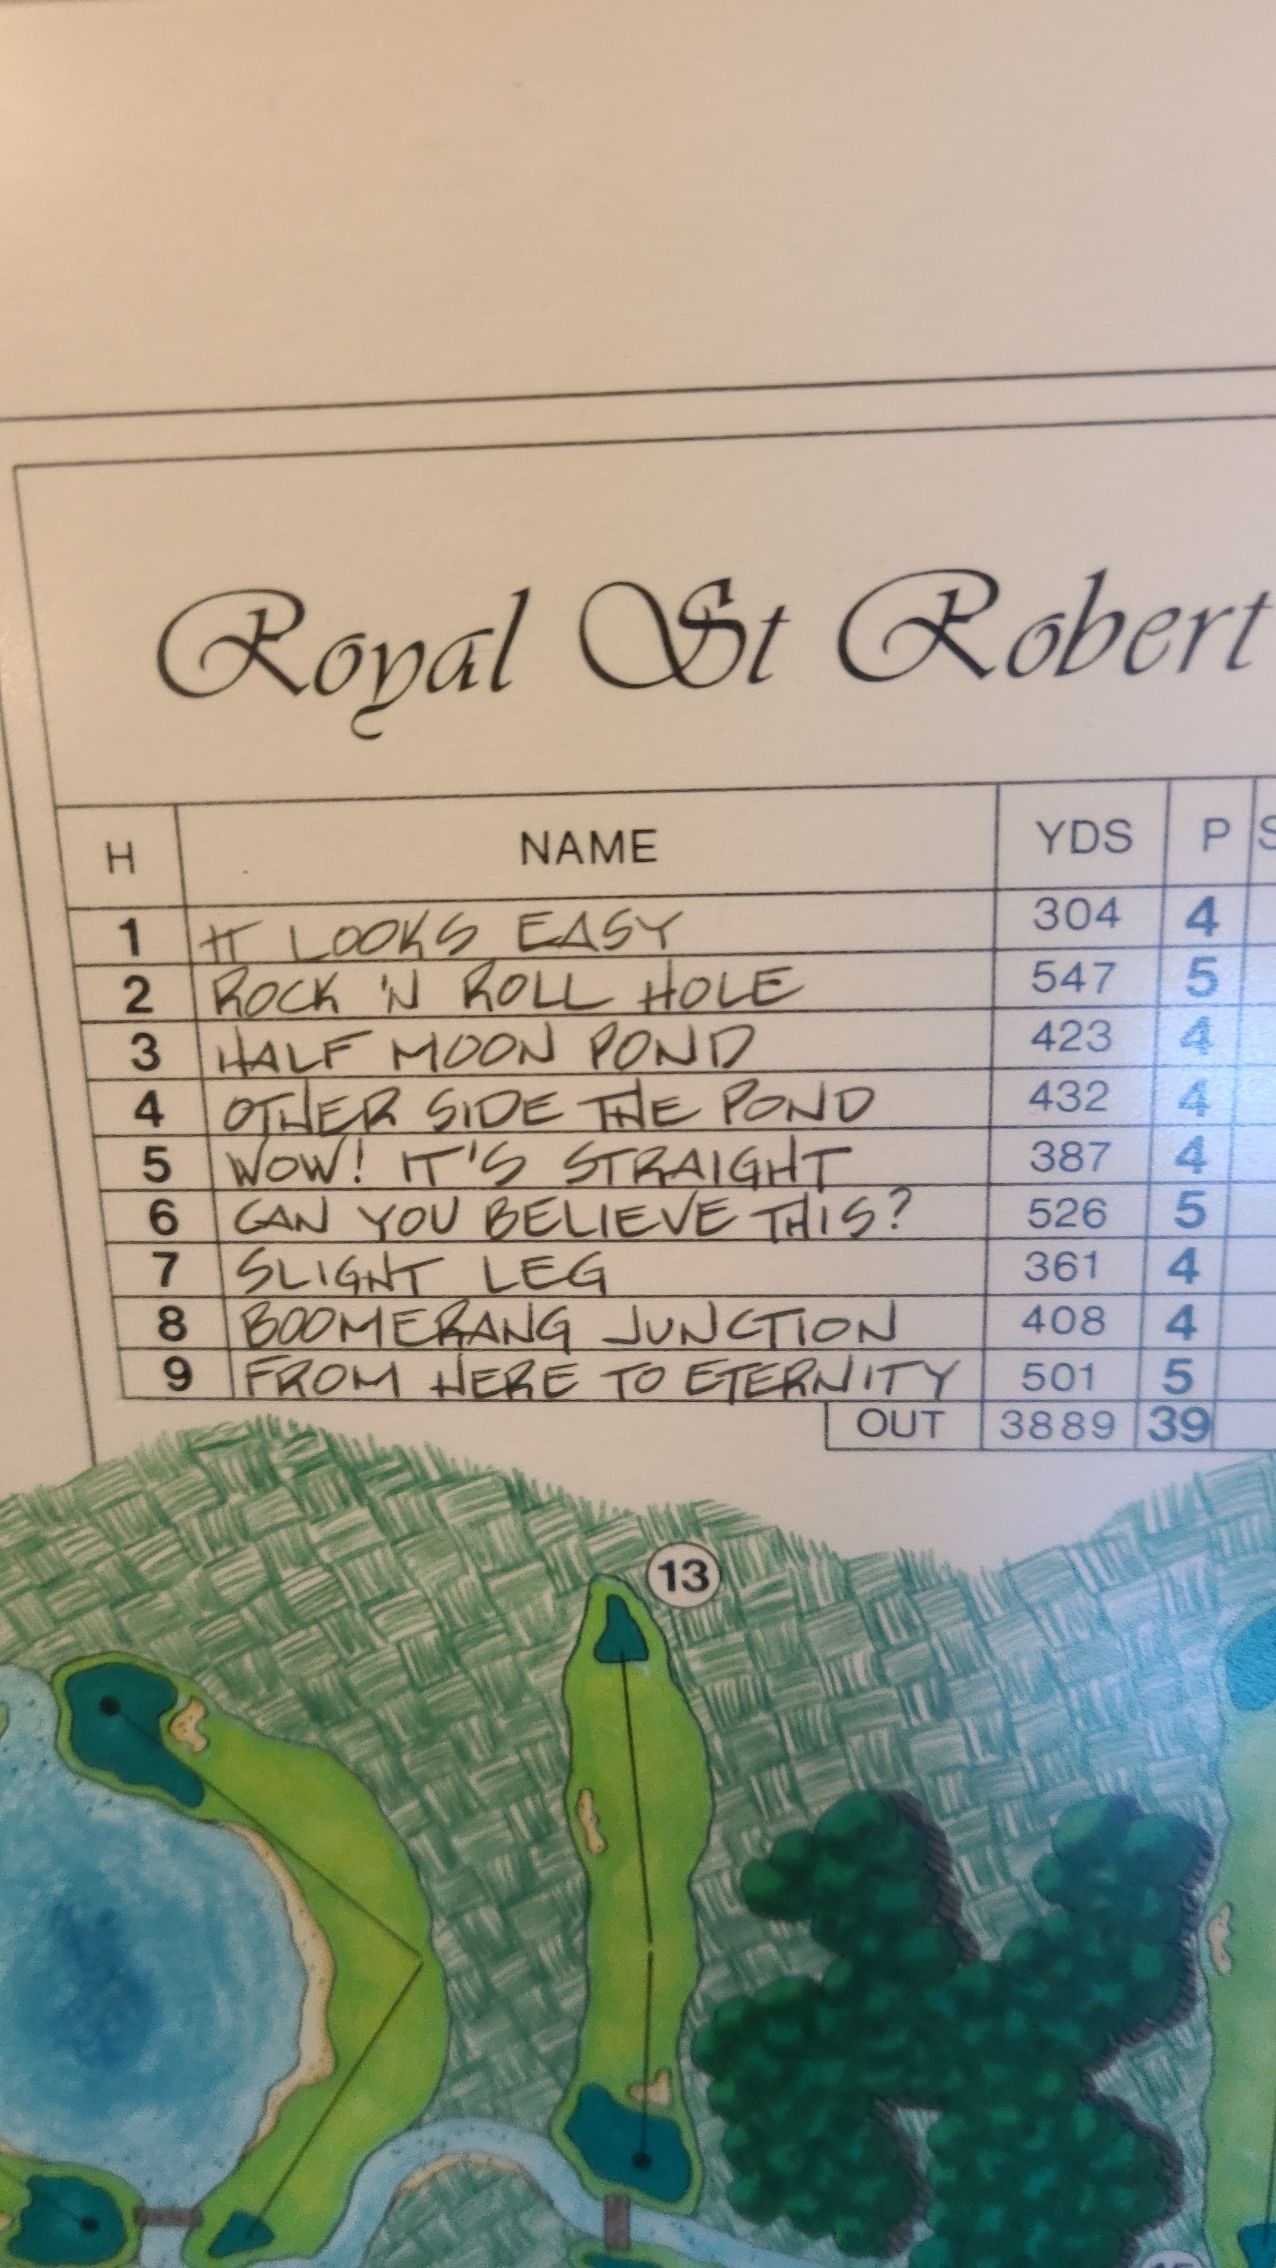 Royal St Robert
H NAME YDS P S
1 IT LOOKS EASY 304 4
2 ROCK 'N ROLL HOLE 547 5
3 HALF MOON POND 423 4
4 OTHER SIDE THE POND 432 4
5 WOW! IT'S STRAIGHT 387 4
6 CAN YOU BELIEVE THIS? 526 5
7 SLIGHT LEG 361 4
8 BOOMERANG JUNCTION 408 4
9 FROM HERE TO ETERNITY 501 5
OUT 3889 39
13